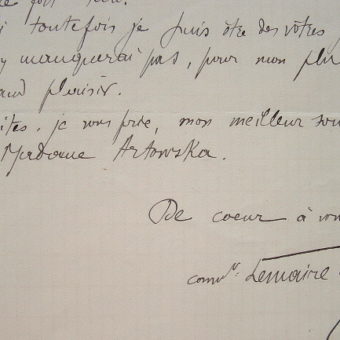 toutefois je puis être des votres
y manquerai pas, pour mon plus
plaisir.
ites, je vous prie, mon meilleur sou
Madame Artowska.
De coeur à vou
comdr. Lemaire